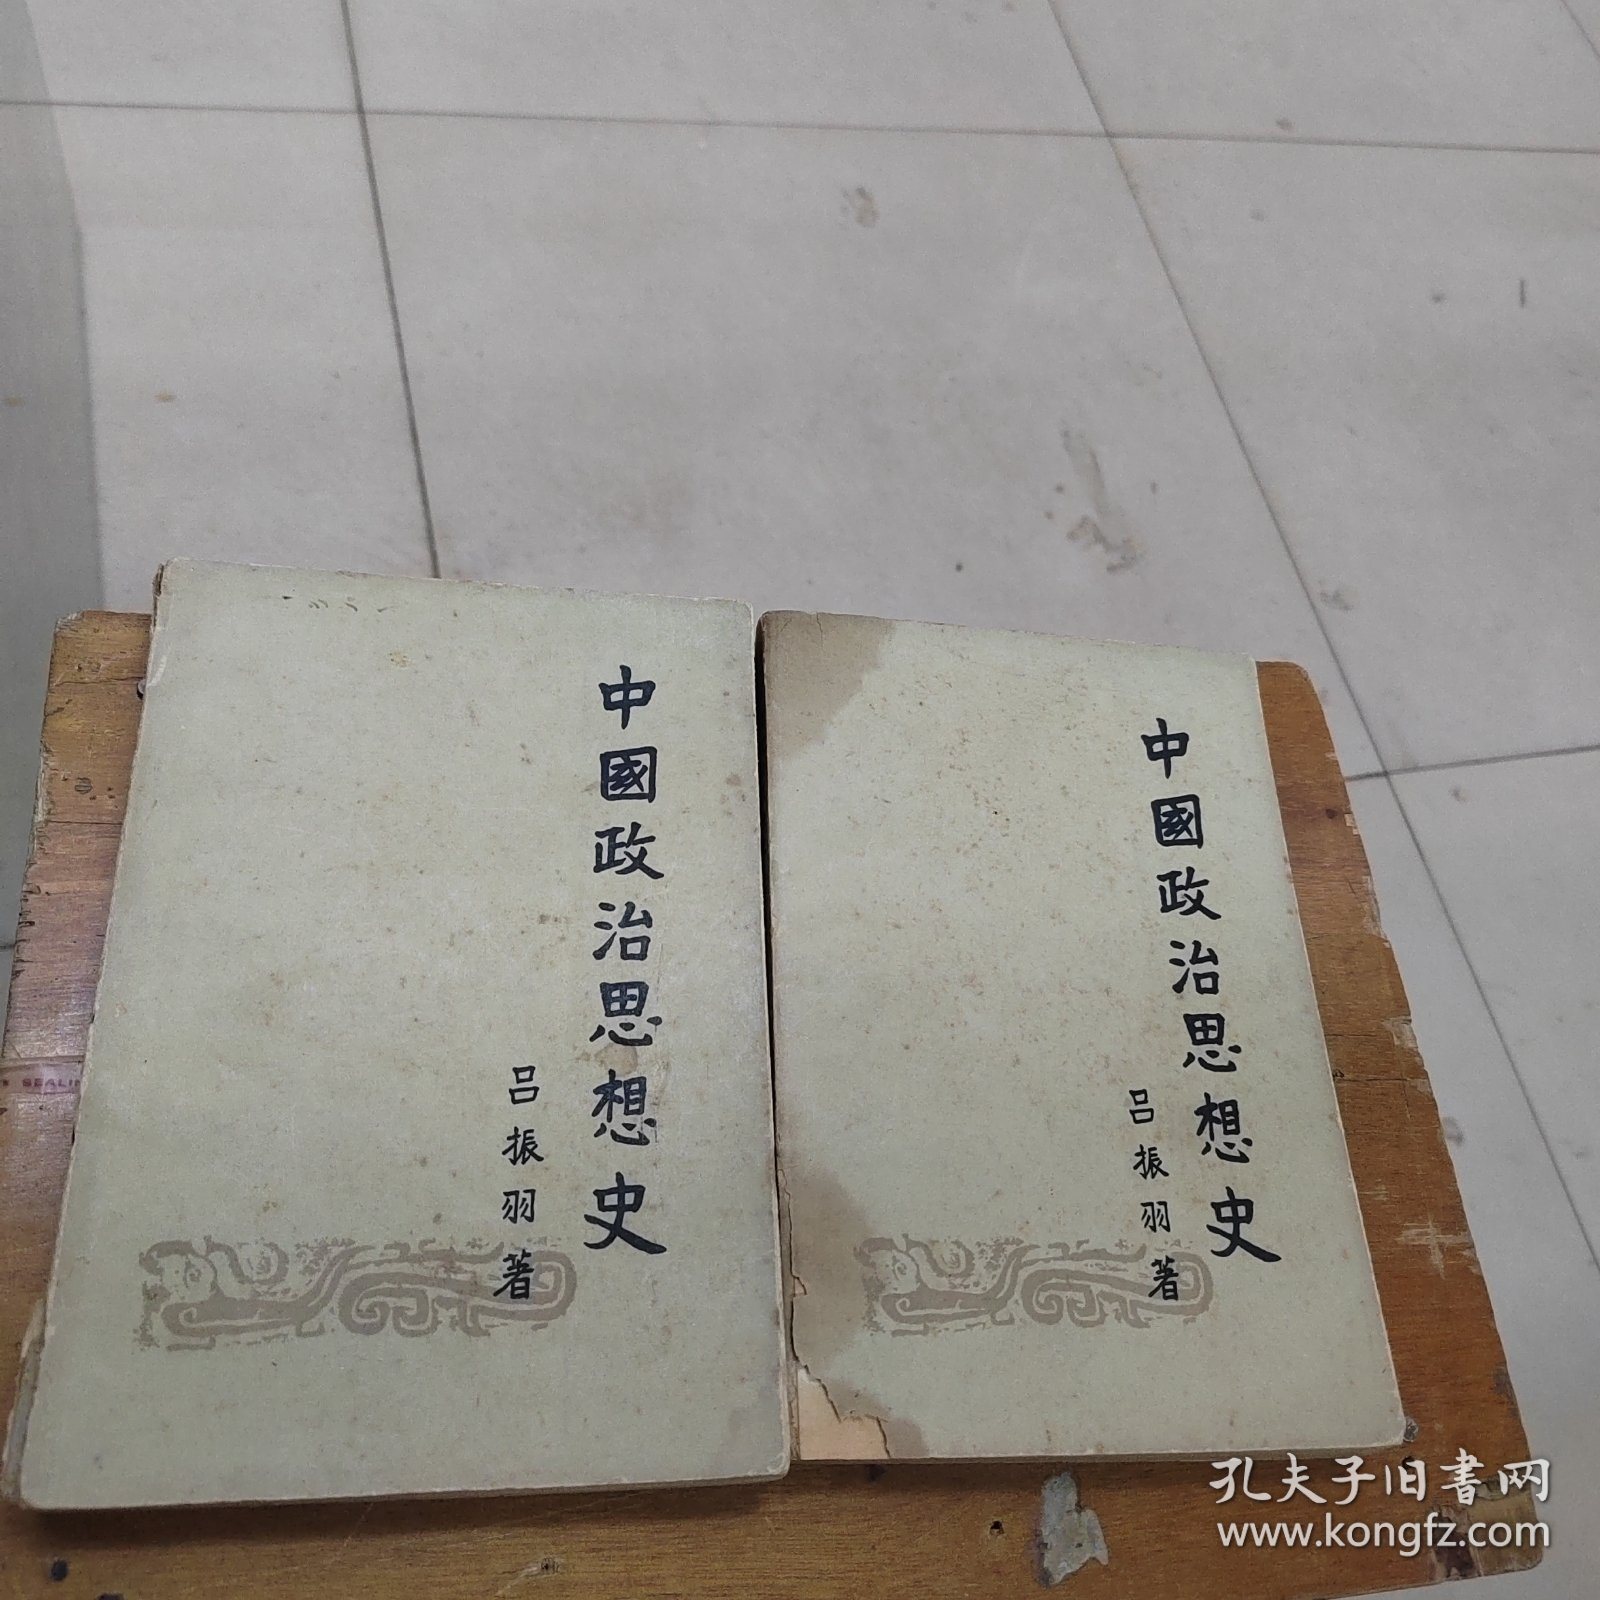 中國政治思想史
呂振羽著
中國政治思想史
呂振羽著
SEALIN
孔夫子旧書网
www.kongfz.com